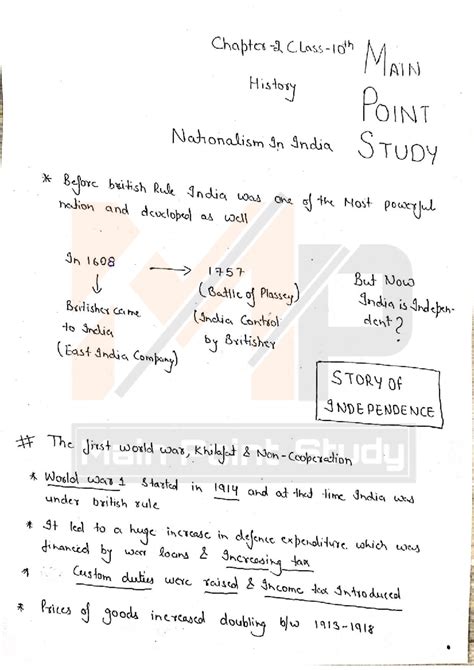 Chapter-2 Class-10th
MAIN
POINT
STUDY
History
Nationalism In India
* Before british Rule India was one of the Most powerful
nation and developed as well
In 1608 → 1757
↓
Britisher came
to India
(East India Company)
(Battle of Plassey)
(India Control
by Britisher
But Now
India is Indepen-
dent?
STORY OF
INDEPENDENCE
# The first world war, Khilafat & Non-Cooperation
Main Point Study
* World war 1 started in 1914 and at that time India was
under british rule
* It led to a huge increase in defence expenditure which was
financied by war loans & Increasing tax
* Custom duties were raised & Income tax Introduced
* Prices of goods increased doubling b/w 1913-1918